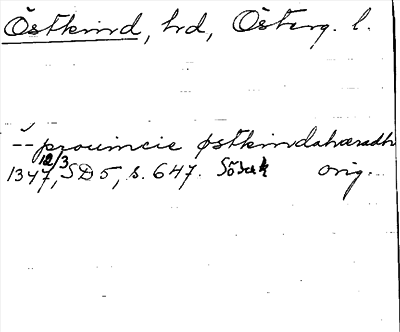 Östkind, hd, Österg. l.
-- prouincie østkindahæradh
1347 12/3, SD 5, s. 647. orig.